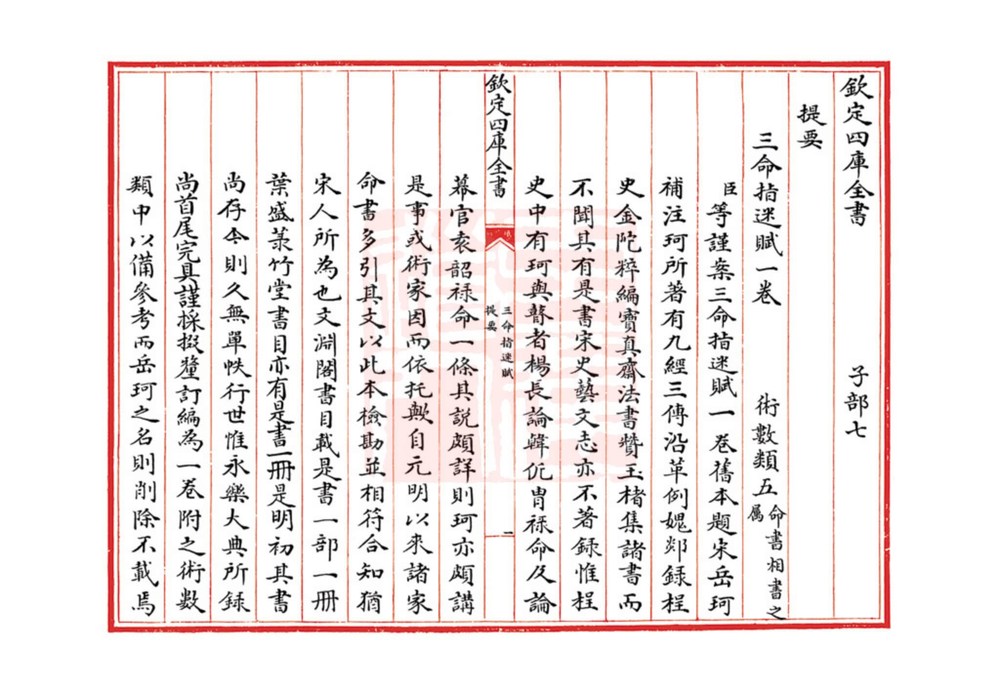 欽定四庫全書　子部七
提要
三命指迷賦一卷　術數類五命書相書之屬
臣等謹案三命指迷賦一卷舊本題宋岳珂
補注珂所著有九經三傳沿革例媿郯録桯
史金陀粹編寶真齋法書贊玉楮集諸書而
不聞其有是書宋史藝文志亦不著録惟桯
史中有珂與瞽者楊艮論韓侂胄禄命及論
欽定四庫全書
三命指迷賦
提要
一
幕官袁韶禄命一條其説頗詳則珂亦頗講
是事或術家因而依托歟自元明以來諸家
命書多引其文以此本檢勘並相符合知猶
宋人所為也文淵閣書目載是書一部一册
葉盛菉竹堂書目亦有是書一册是明初其書
尚存今則久無單帙行世惟永樂大典所録
尚首尾完具謹採掇釐訂編為一卷附之術數
類中以備參考而岳珂之名則削除不載焉